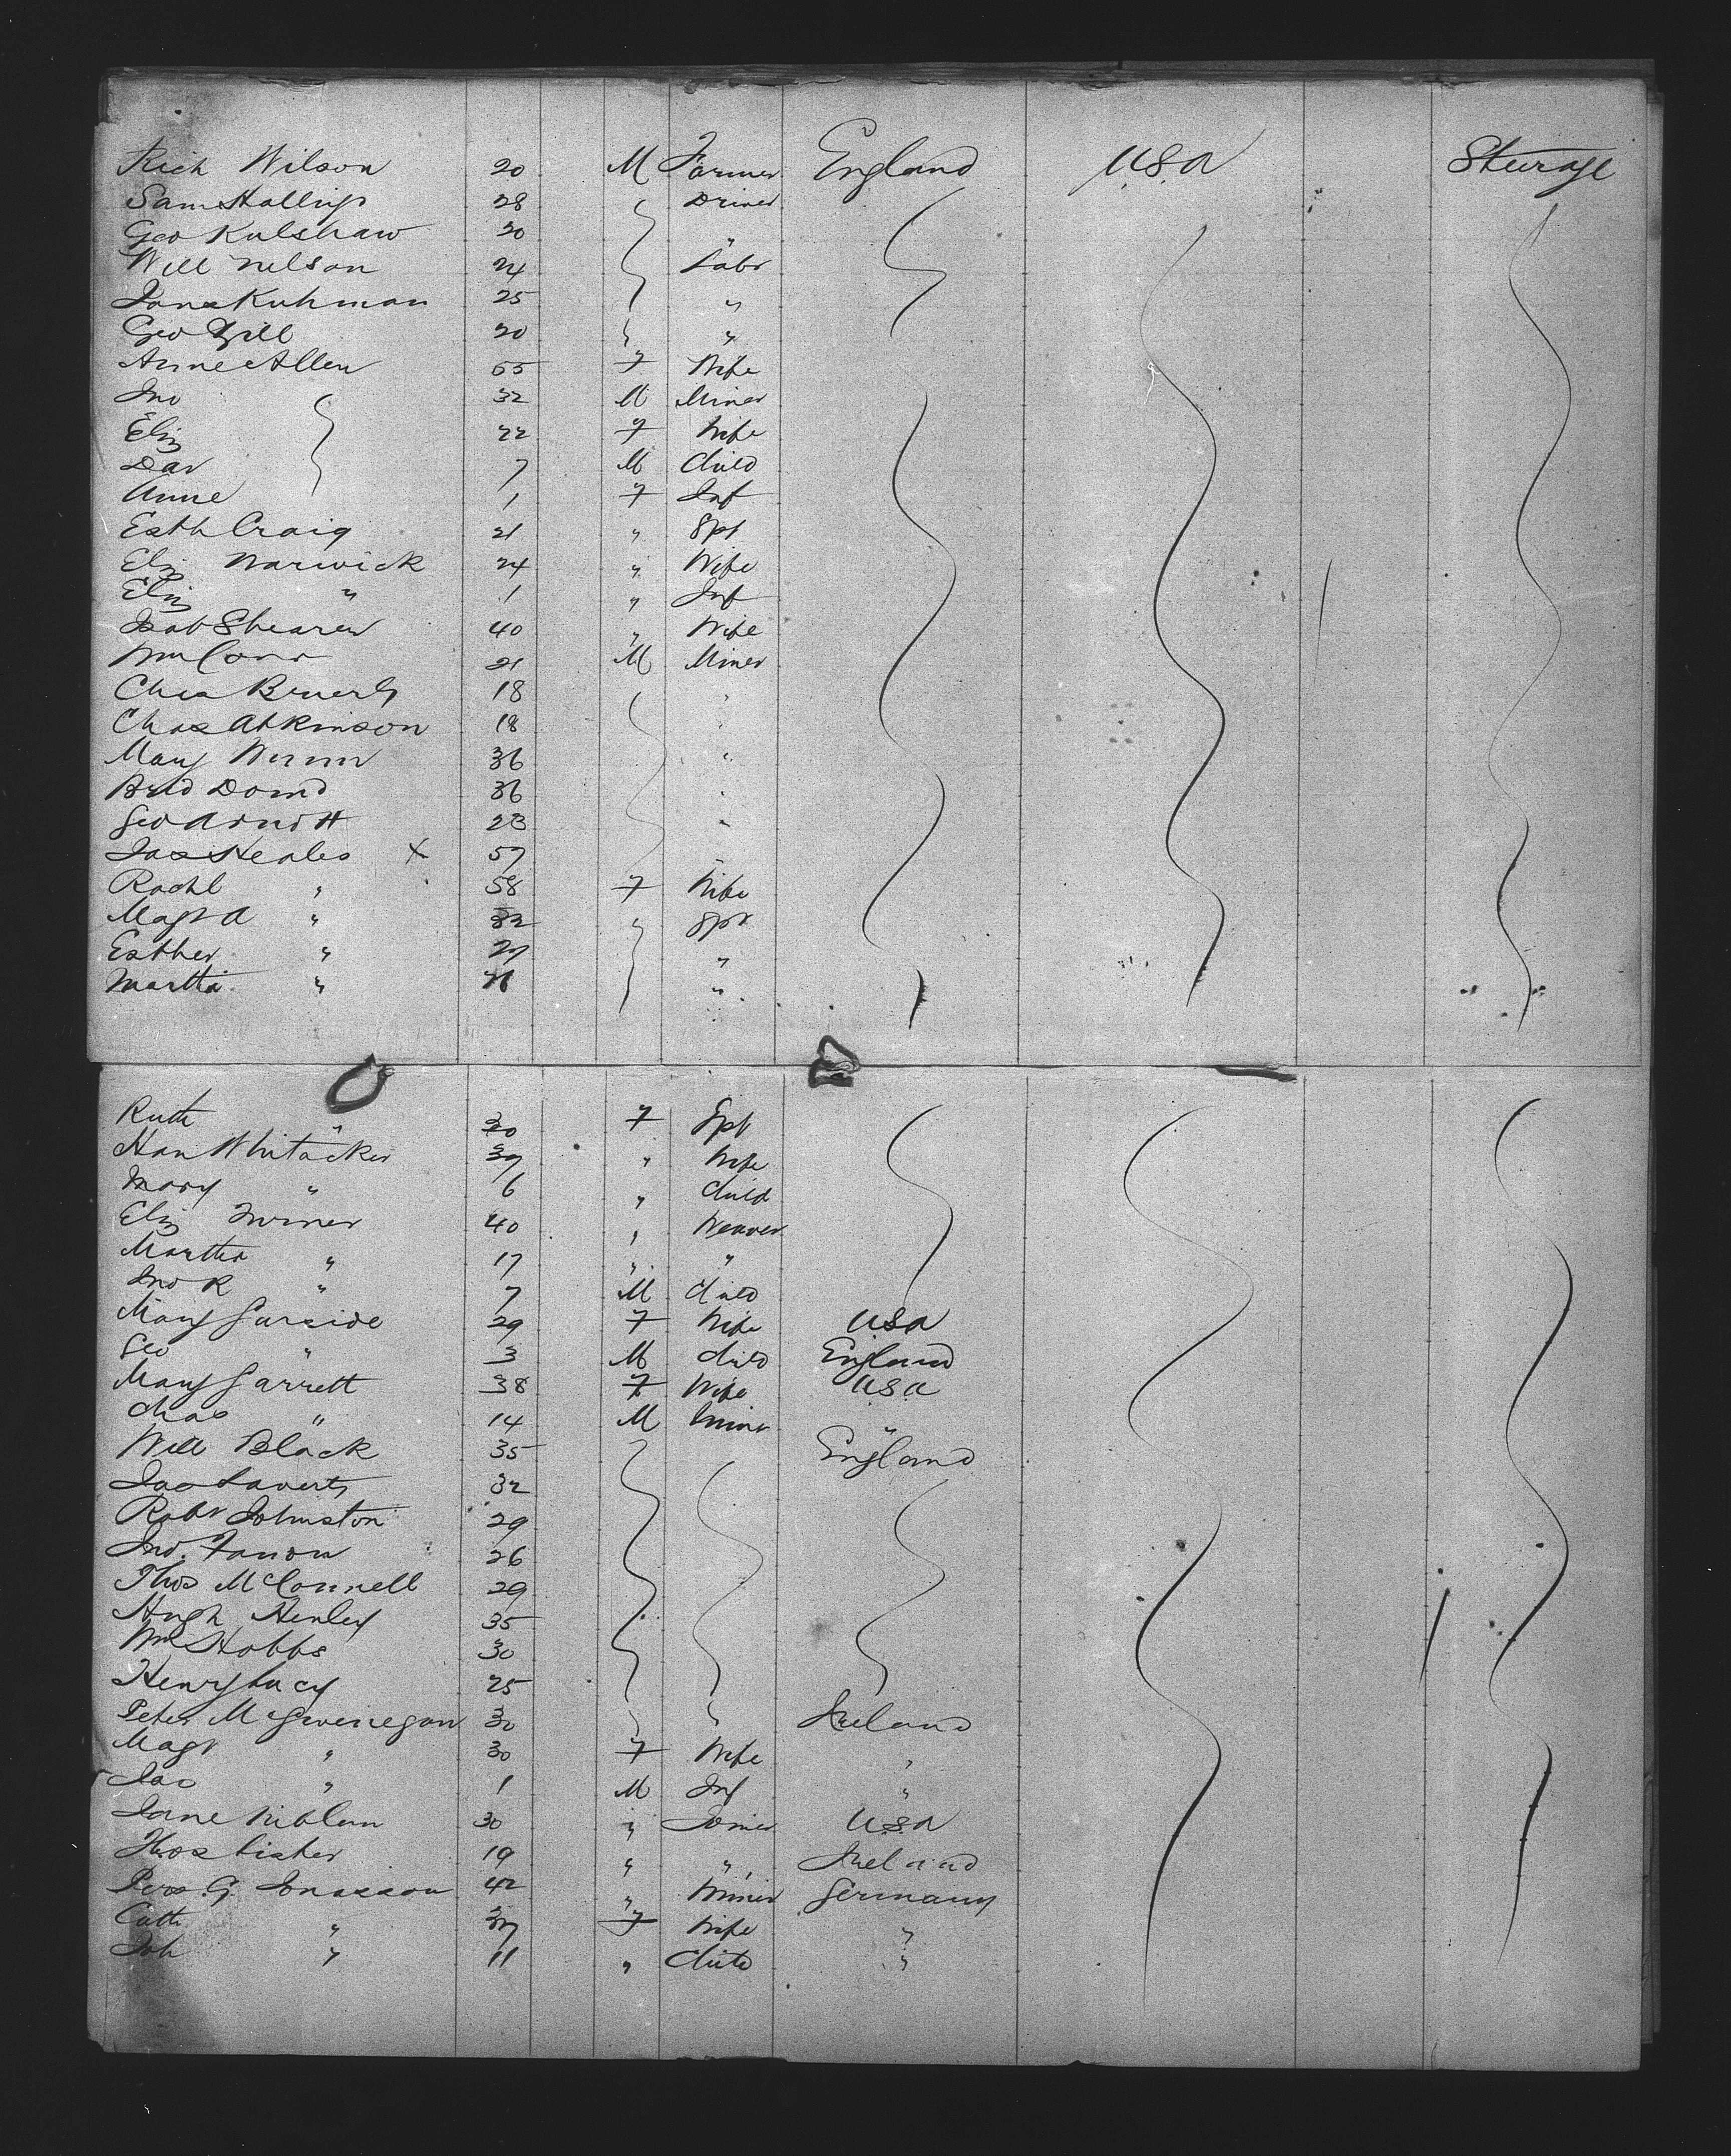 Rich Wilson 20 M Farmer England U.S.A Steerage
Sam Hallings 28 Driver
Geo Kulshaw 30 "
Will Nelson 24 Labr
Jones Kuhman 25 "
Geo Gill 20 "
Anne Allen 55 F Wife
Jno 32 M Miner
Eliz 22 F Wife
Dav 7 M Child
Anne 1 F Inf
Esth Craig 21 " Spt
Eliz Warwick 24 " Wife
Eliz " 1 " Inf
Isab Shearer 40 " Wife
Wm Carr 21 M Miner
Chas 18 "
Chas Atkinson 18 "
Mary 36 "
36 "
Geo Arnott 23 "
Jas Heales X 57
Rachl " 58 F Wife
Magt A " 32 " Spt
Esther " 27 "
Martha " 26 "
Ruth " 30 F Spt
Han Whitacker 37 " Wife
Mary " 6 " Child
Eliz Turner 40 " Weaver
Martha " 17 " "
Jno R " 7 M Child
Mary Garside 29 F Wife USA
Geo " 3 M Child England
Mary Garrett 38 F Wife USA
Chas " 14 M Miner "
Will Black 35 England
Jas 32
Robt Johnston 29
Jno. Fanon 26
Thos McConnell 29
Hugh Henley 35
Wm Hobbs 30
Henry Lucy 25
Peter McGwenegan 30 Ireland
Magt " 30 F Wife "
Jas " 1 M Inf "
Jane Niblan 30 " Joiner U.S.A
Thos Lister 19 " " Ireland
Pers. G. Jonasson 42 " Miner Germany
Cath " 37 F Wife "
Joh " 11 " Child "